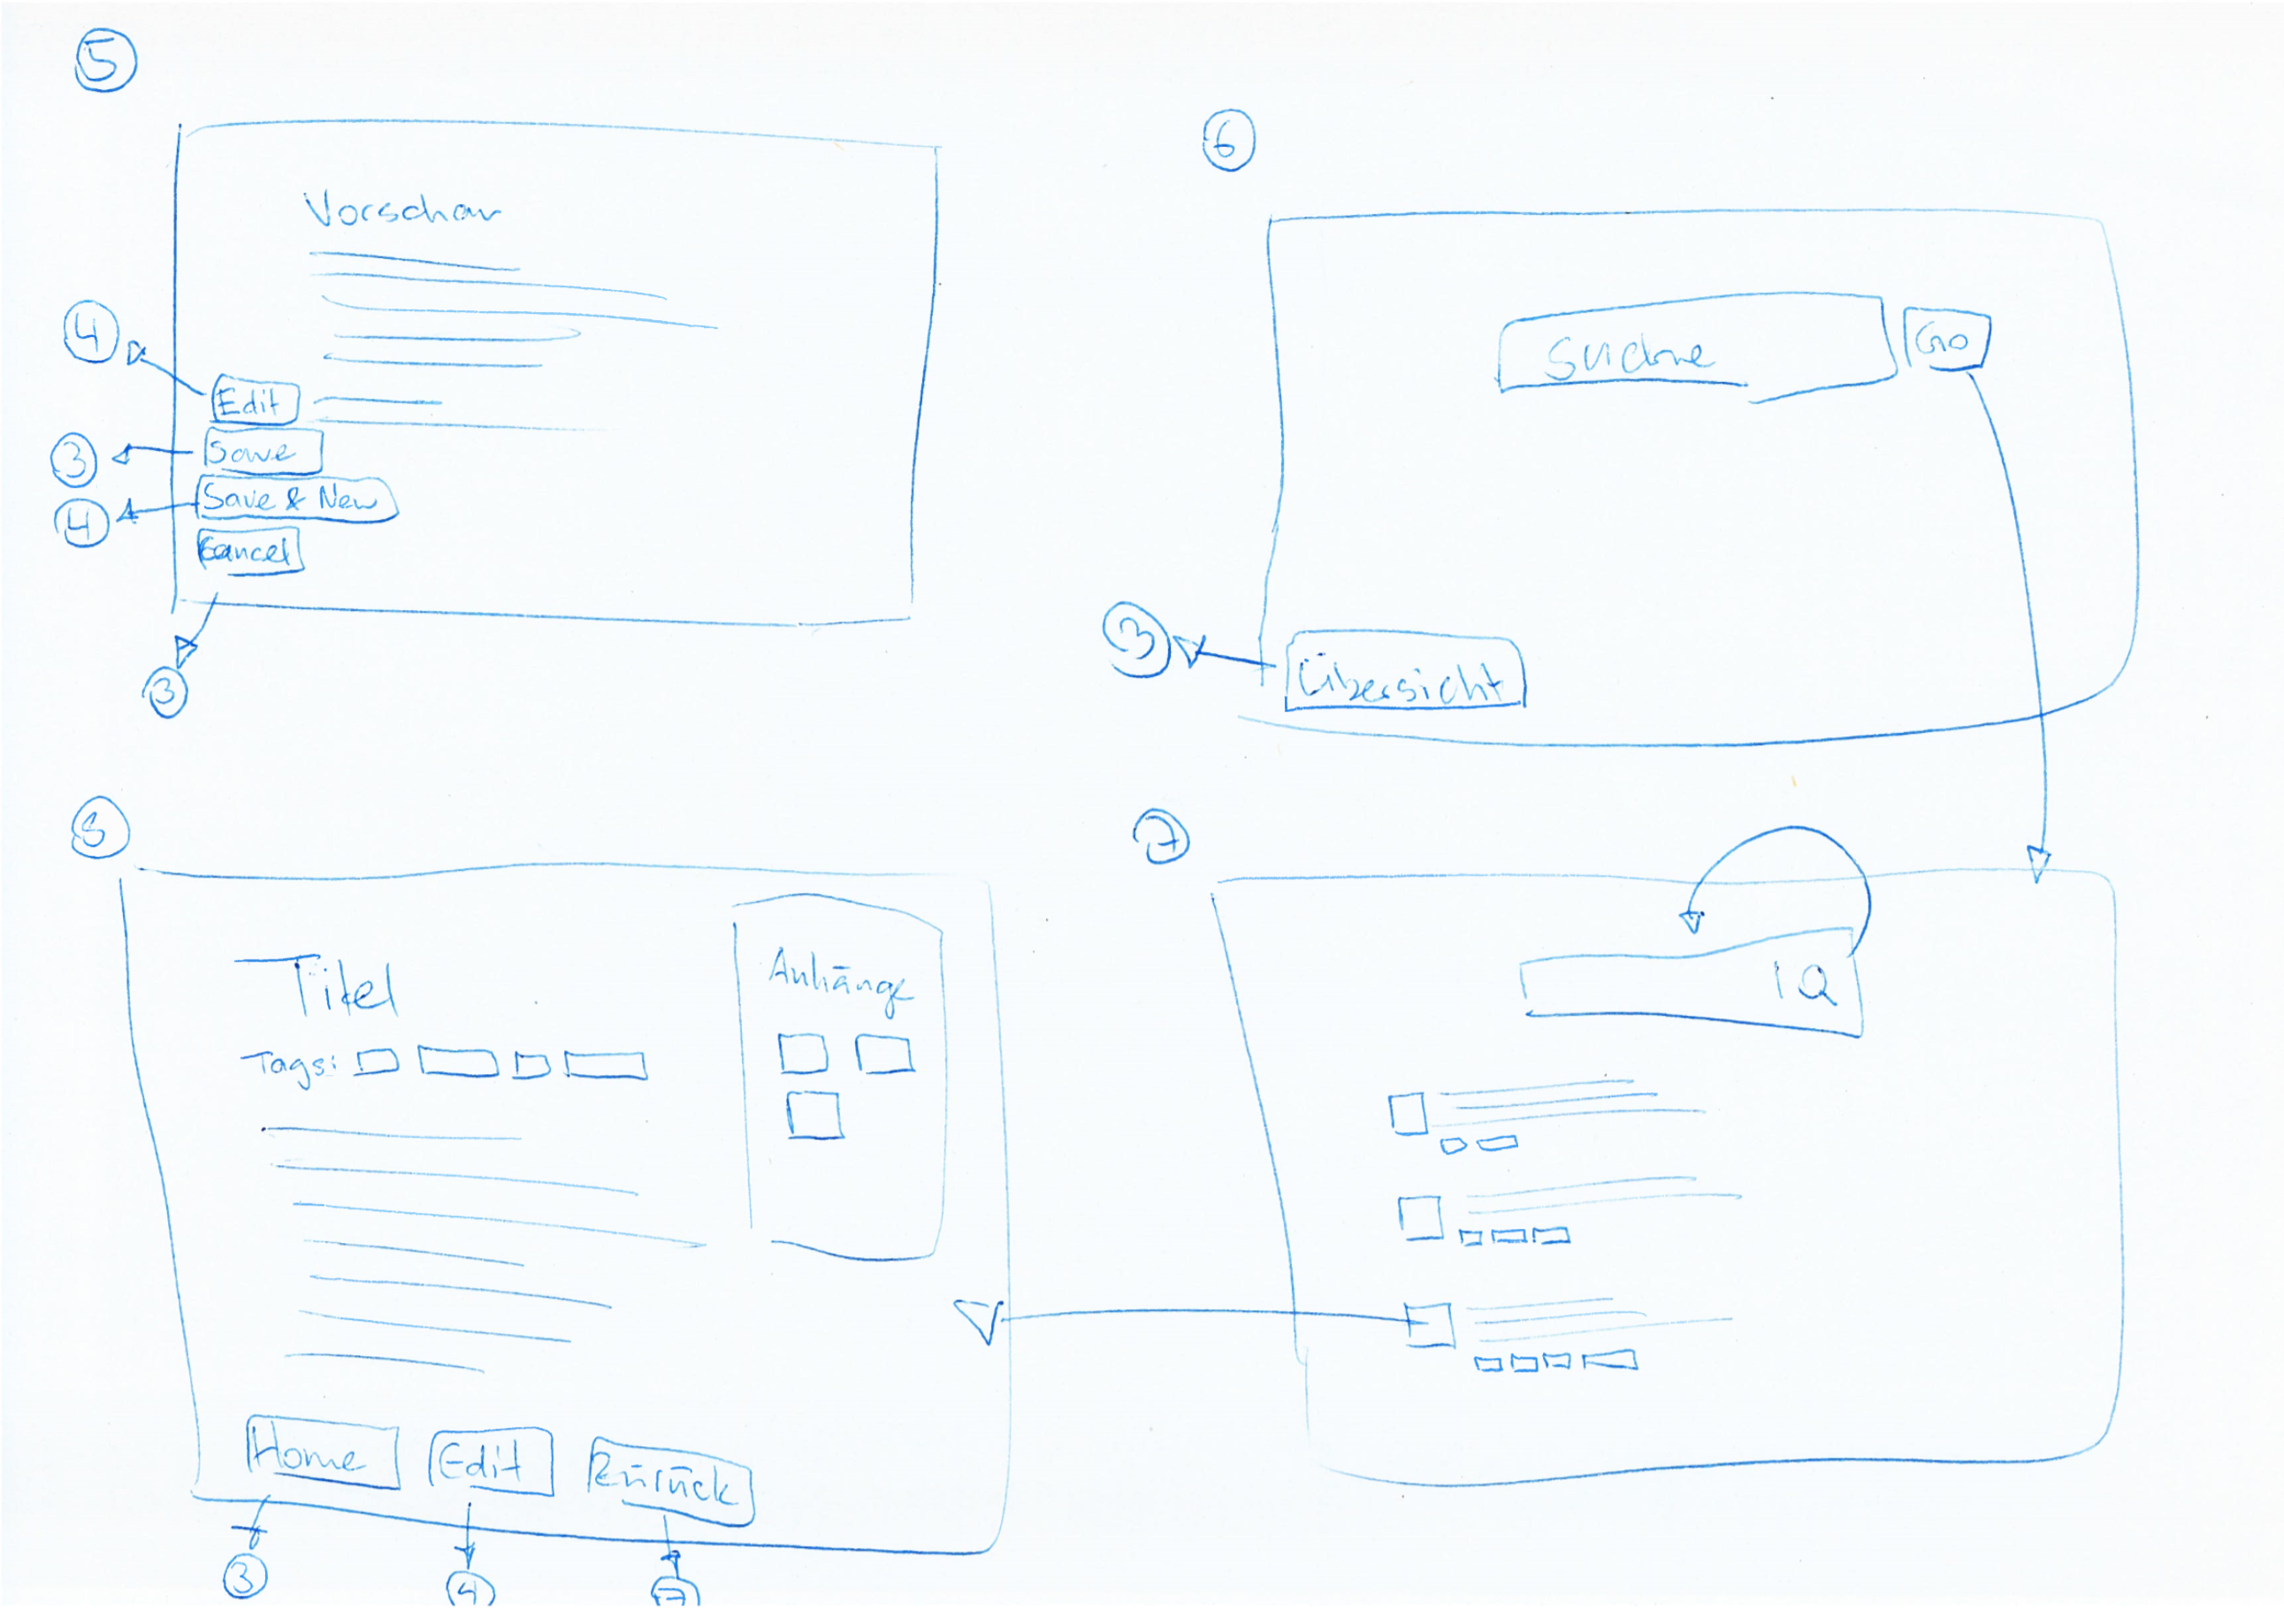 5
Vorschau
4
Edit
3
Save
4
Save & New
Cancel
3
6
Suche
Go
3
Übersicht
8
Titel
Tags:
Anhänge
Home
Edit
Zurück
3
4
7
7